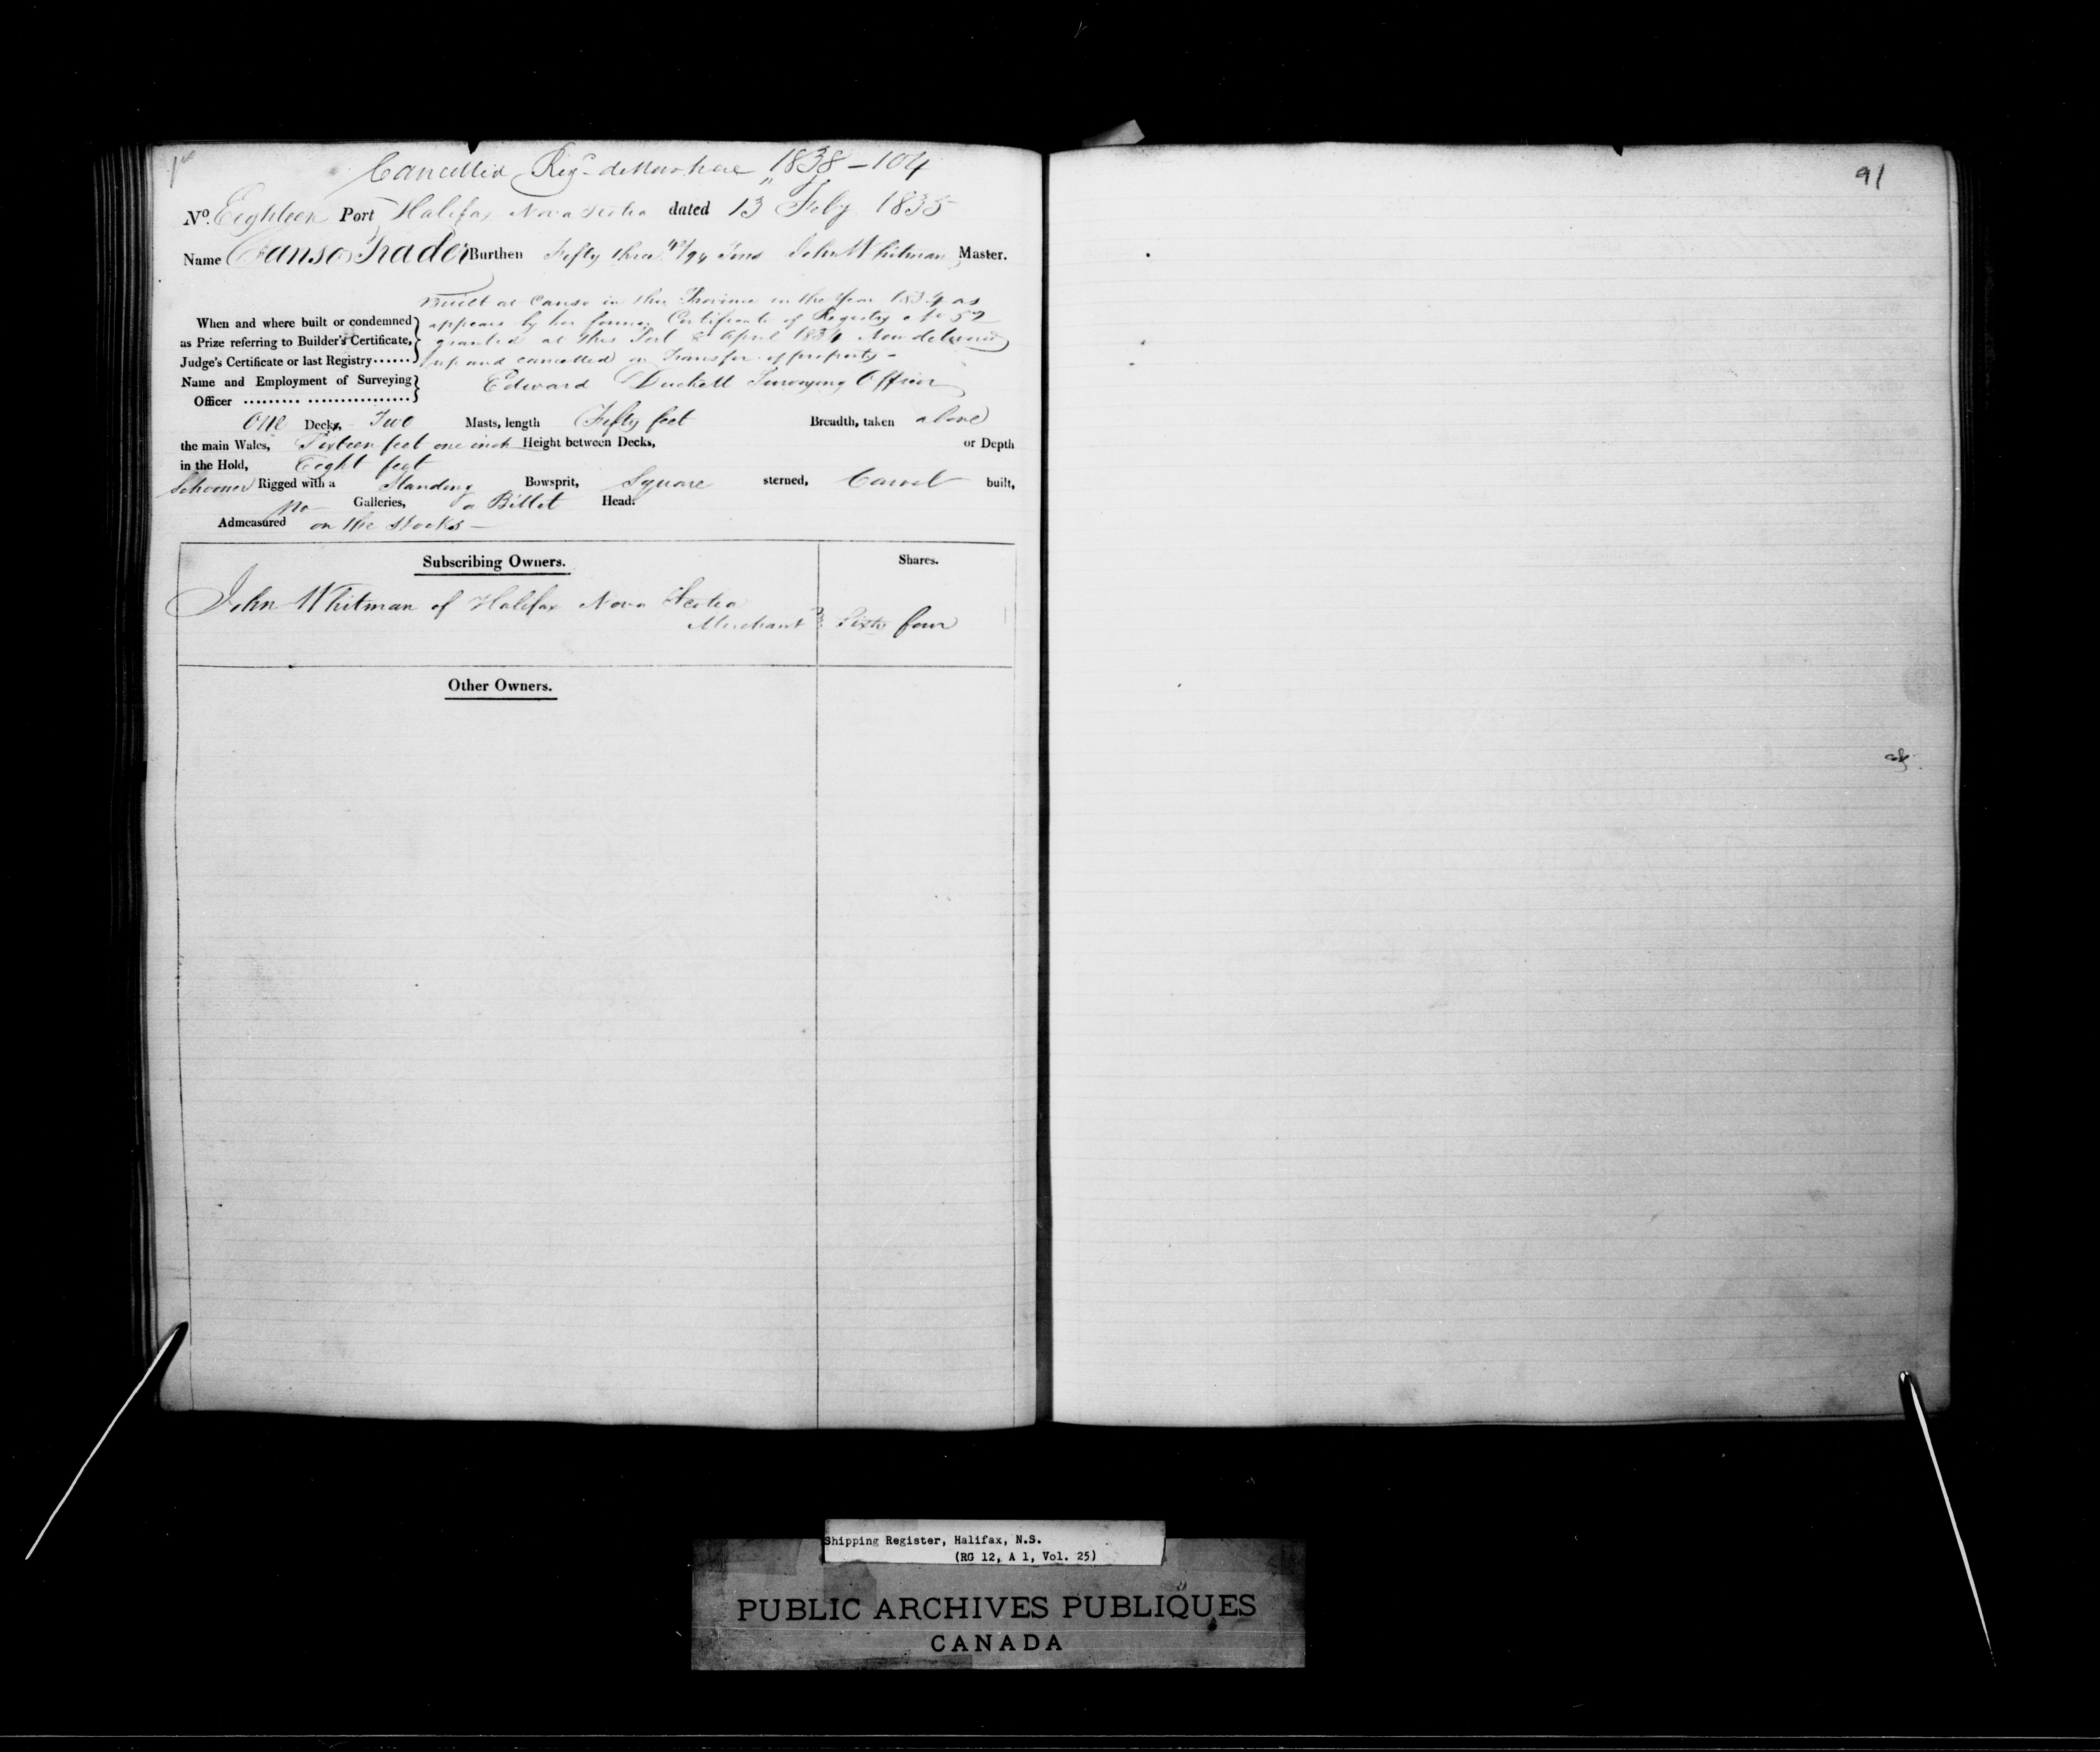 Cancelled Reg.d de Novo here 1838 - 104
91
No. Eighteen Port Halifax Nova Scotia dated 13 Feby 1835
Name Canso Trader Burthen Fifty three 42/94 Tons John Whitman Master.
Built at Canso in this Province in the Year 1834 as
When and where built or condemned appears by her former Certificate of Registry No 52
as Prize referring to Builder's Certificate, granted at this Port 8 April 1834 Now delivered
Judge's Certificate or last Registry...... up and cancelled on Transfer of property -
Name and Employment of Surveying Edward Duckett Surveying Officer
Officer ......... ................
One Decks, Two Masts, length Fifty feet Breadth, taken above
the main Wales, Sixteen feet one inch Height between Decks, or Depth
in the Hold, Eight feet
Schooner Rigged with a Standing Bowsprit, Square sterned, Carvel built,
No Galleries, a Billet Head.
Admeasured on the Stocks -
Subscribing Owners. Shares.
John Whitman of Halifax Nova Scotia
Merchant Sixty four
Other Owners.
Shipping Register, Halifax, N.S.
(RG 12, A 1, Vol. 25)
PUBLIC ARCHIVES PUBLIQUES
CANADA